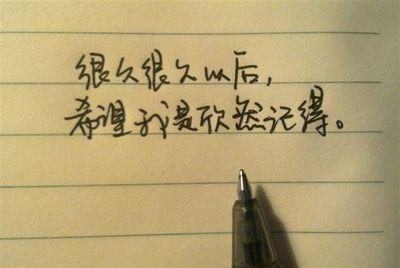 很久很久以后,
希望我是欣然记得。